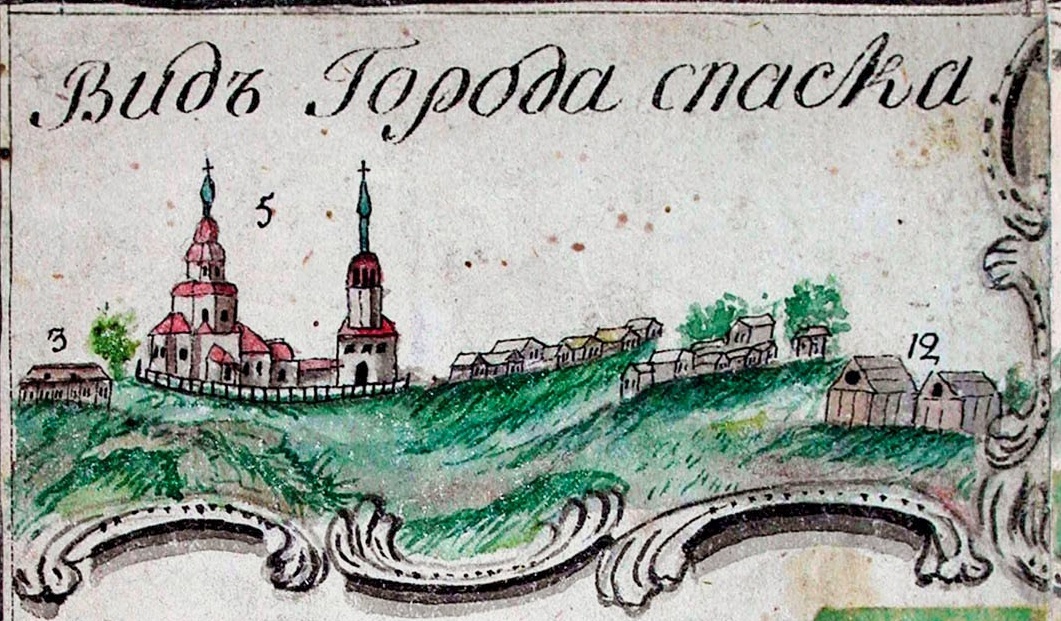 Видъ Города спаска
5
3
12